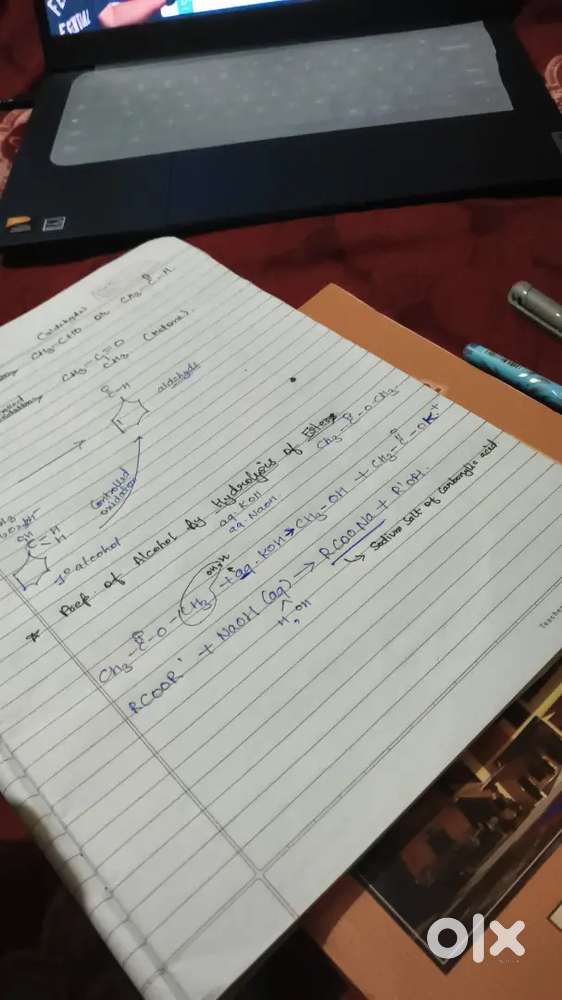 (aldehyde)
CH3-CHO or CH3-C-H
O
CH3-C=O (Ketone)
CH3
O
C-H
aldehyde
Controlled
oxidation
OH
C H
H
1° alcohol
* Prep. of Alcohol by Hydrolysis of Esters
aq. KOH
aq. NaOH
CH3-C-O-CH3
O
CH3-C-O-CH3 + aq. KOH → CH3-OH + CH3-C-OK+
O
RCOOR' + NaOH (aq) → RCOONa + R'OH.
H OH
↳ Sodium salt of carboxylic acid
olx